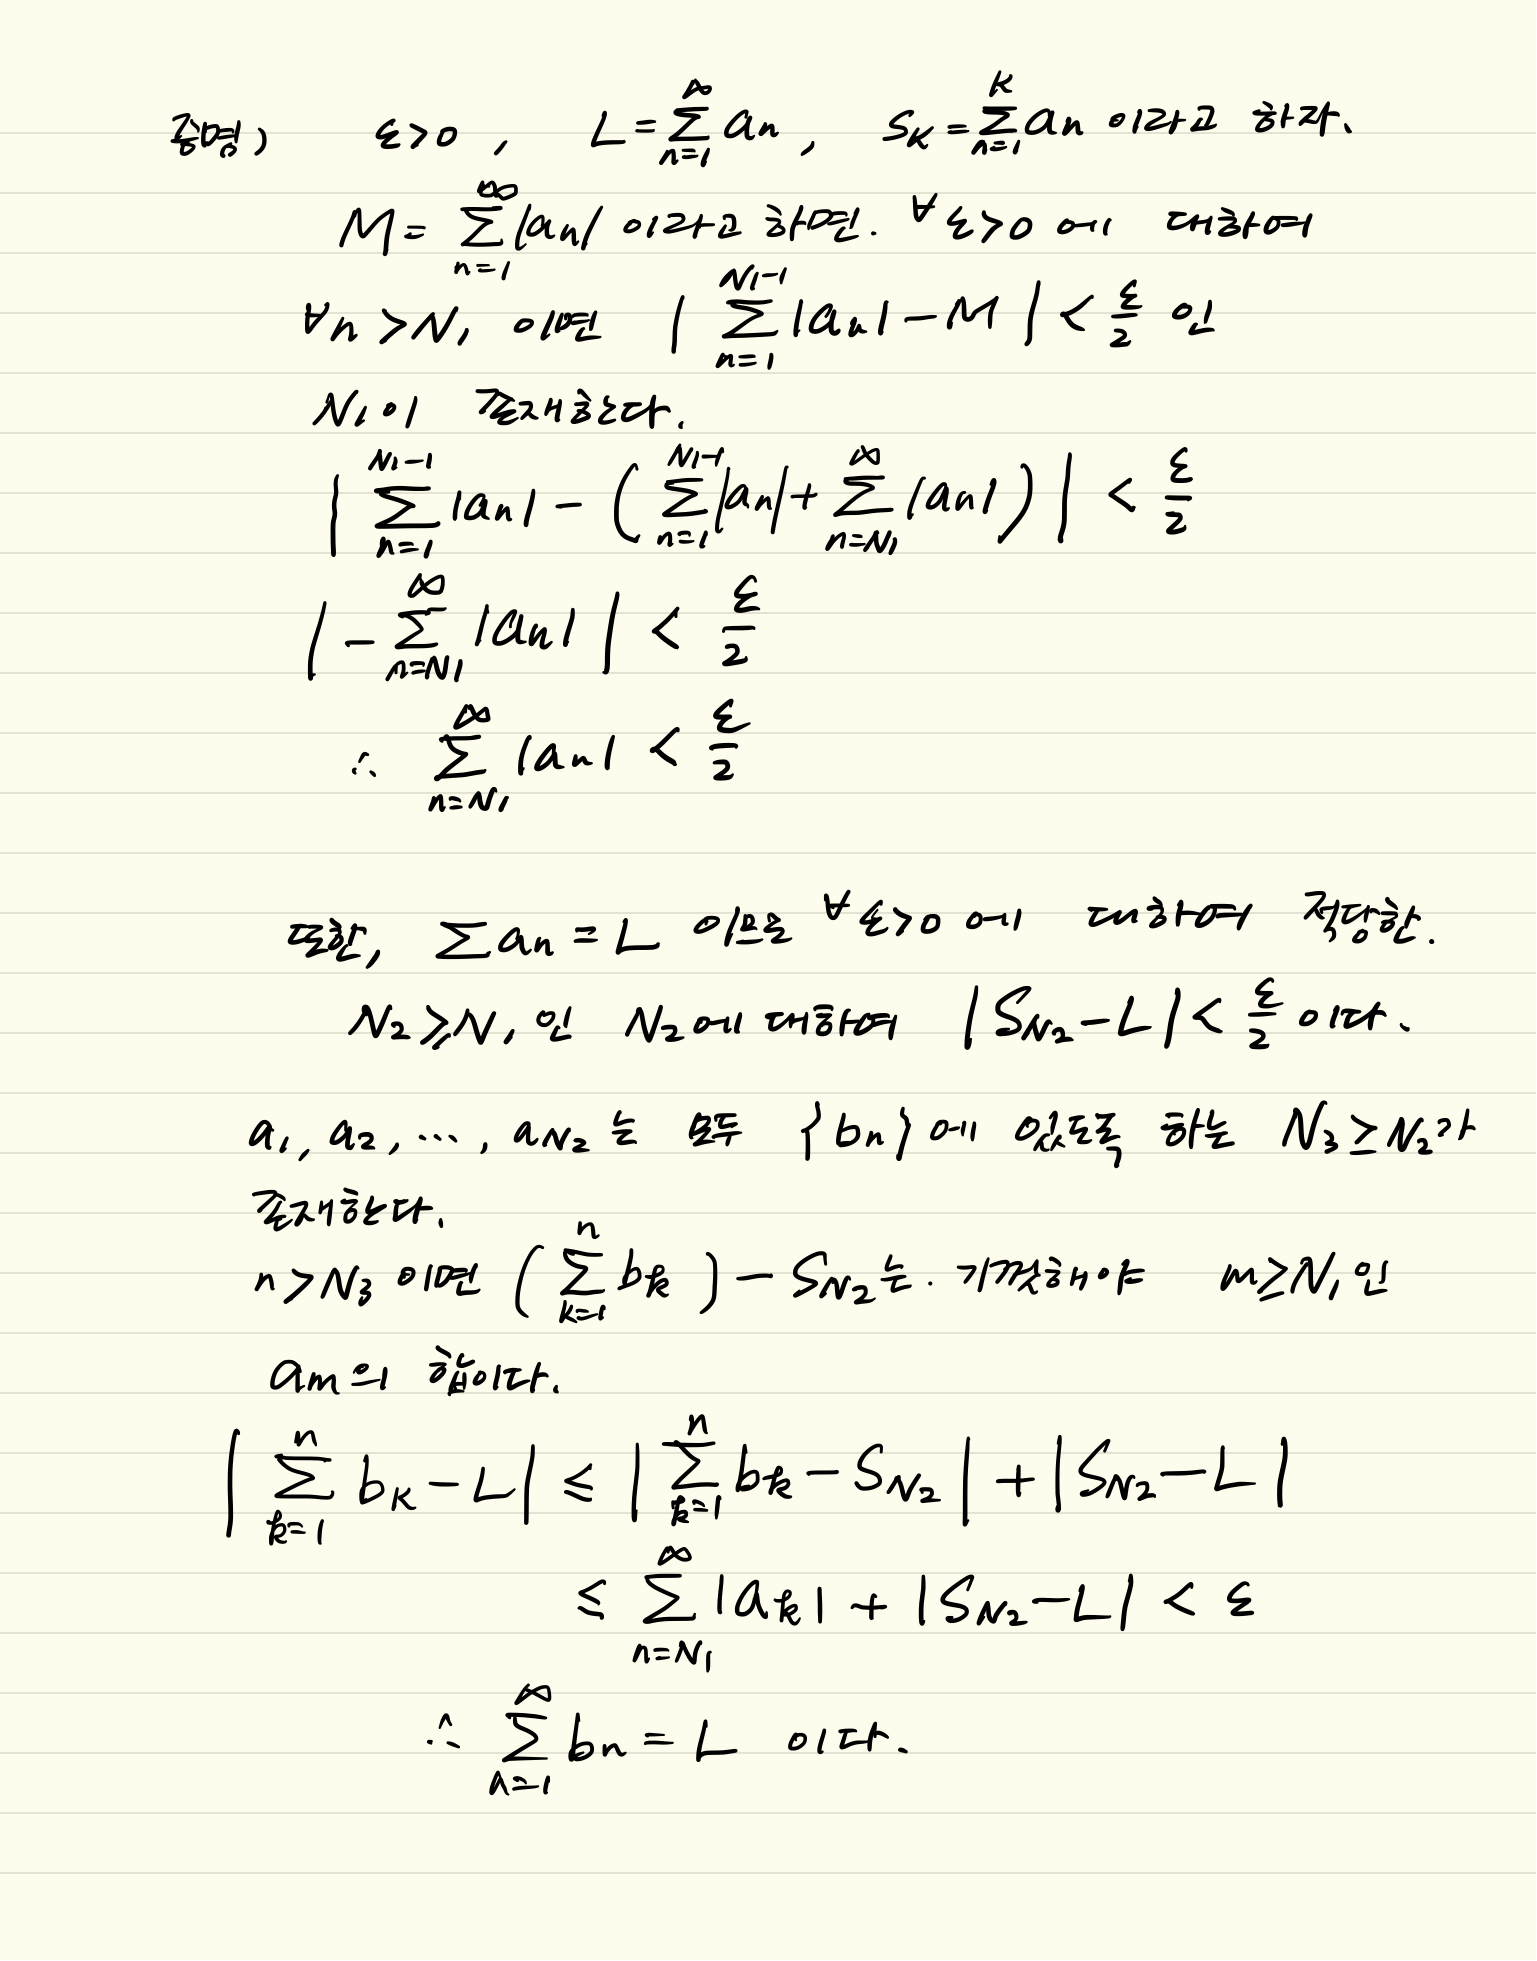 증명) ε>0 , L=∑_{n=1}^{∞} an , SK=∑_{n=1}^{K} an 이라고 하자.
M= ∑_{n=1}^{∞} |an| 이라고 하면. ∀ε>0 에 대하여
∀n >N1 이면 | ∑_{n=1}^{N1-1} |an| - M | < ε/2 인
N1이 존재한다.
| ∑_{n=1}^{N1-1} |an| - ( ∑_{n=1}^{N1-1} |an| + ∑_{n=N1}^{∞} |an| ) | < ε/2
| - ∑_{n=N1}^{∞} |an| | < ε/2
∴ ∑_{n=N1}^{∞} |an| < ε/2
또한, ∑an = L 이므로 ∀ε>0 에 대하여 적당한.
N2 ≥ N1 인 N2에 대하여 | SN2 - L | < ε/2 이다.
a1, a2, ..., aN2 는 모두 {bn} 에 있도록 하는 N3 ≥ N2가
존재한다.
n > N3 이면 ( ∑_{k=1}^{n} bk ) - SN2 는. 기껏해야 m≥N1인
am의 합이다.
| ∑_{k=1}^{n} bK - L | ≤ | ∑_{k=1}^{n} bk - SN2 | + | SN2 - L |
≤ ∑_{n=N1}^{∞} |ak| + | SN2 - L | < ε
∴ ∑_{n=1}^{∞} bn = L 이다.